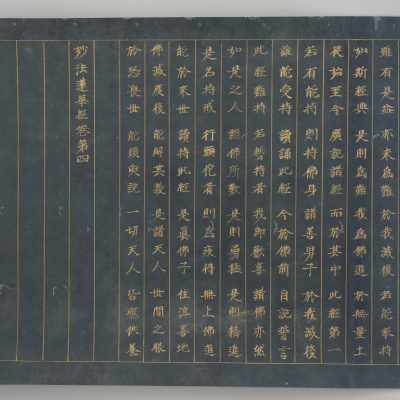 雖有是益 亦未為難 於我滅後 若能奉持
如斯經典 是則為難 我為佛道 於無量土
從始至今 廣說諸經 而於其中 此經第一
若有能持 則持佛身 諸善男子 於我滅後
誰能受持 讀誦此經 今於佛前 自說誓言
此經難持 若暫持者 我即歡喜 諸佛亦然
如是之人 諸佛所歎 是則勇猛 是則精進
是名持戒 行頭陀者 則為疾得 無上佛道
能於來世 讀持此經 是真佛子 住淳善地
佛滅度後 能解其義 是諸天人 世間之眼
於恐畏世 能須臾說 一切天人 皆應供養
妙法蓮華經卷第四